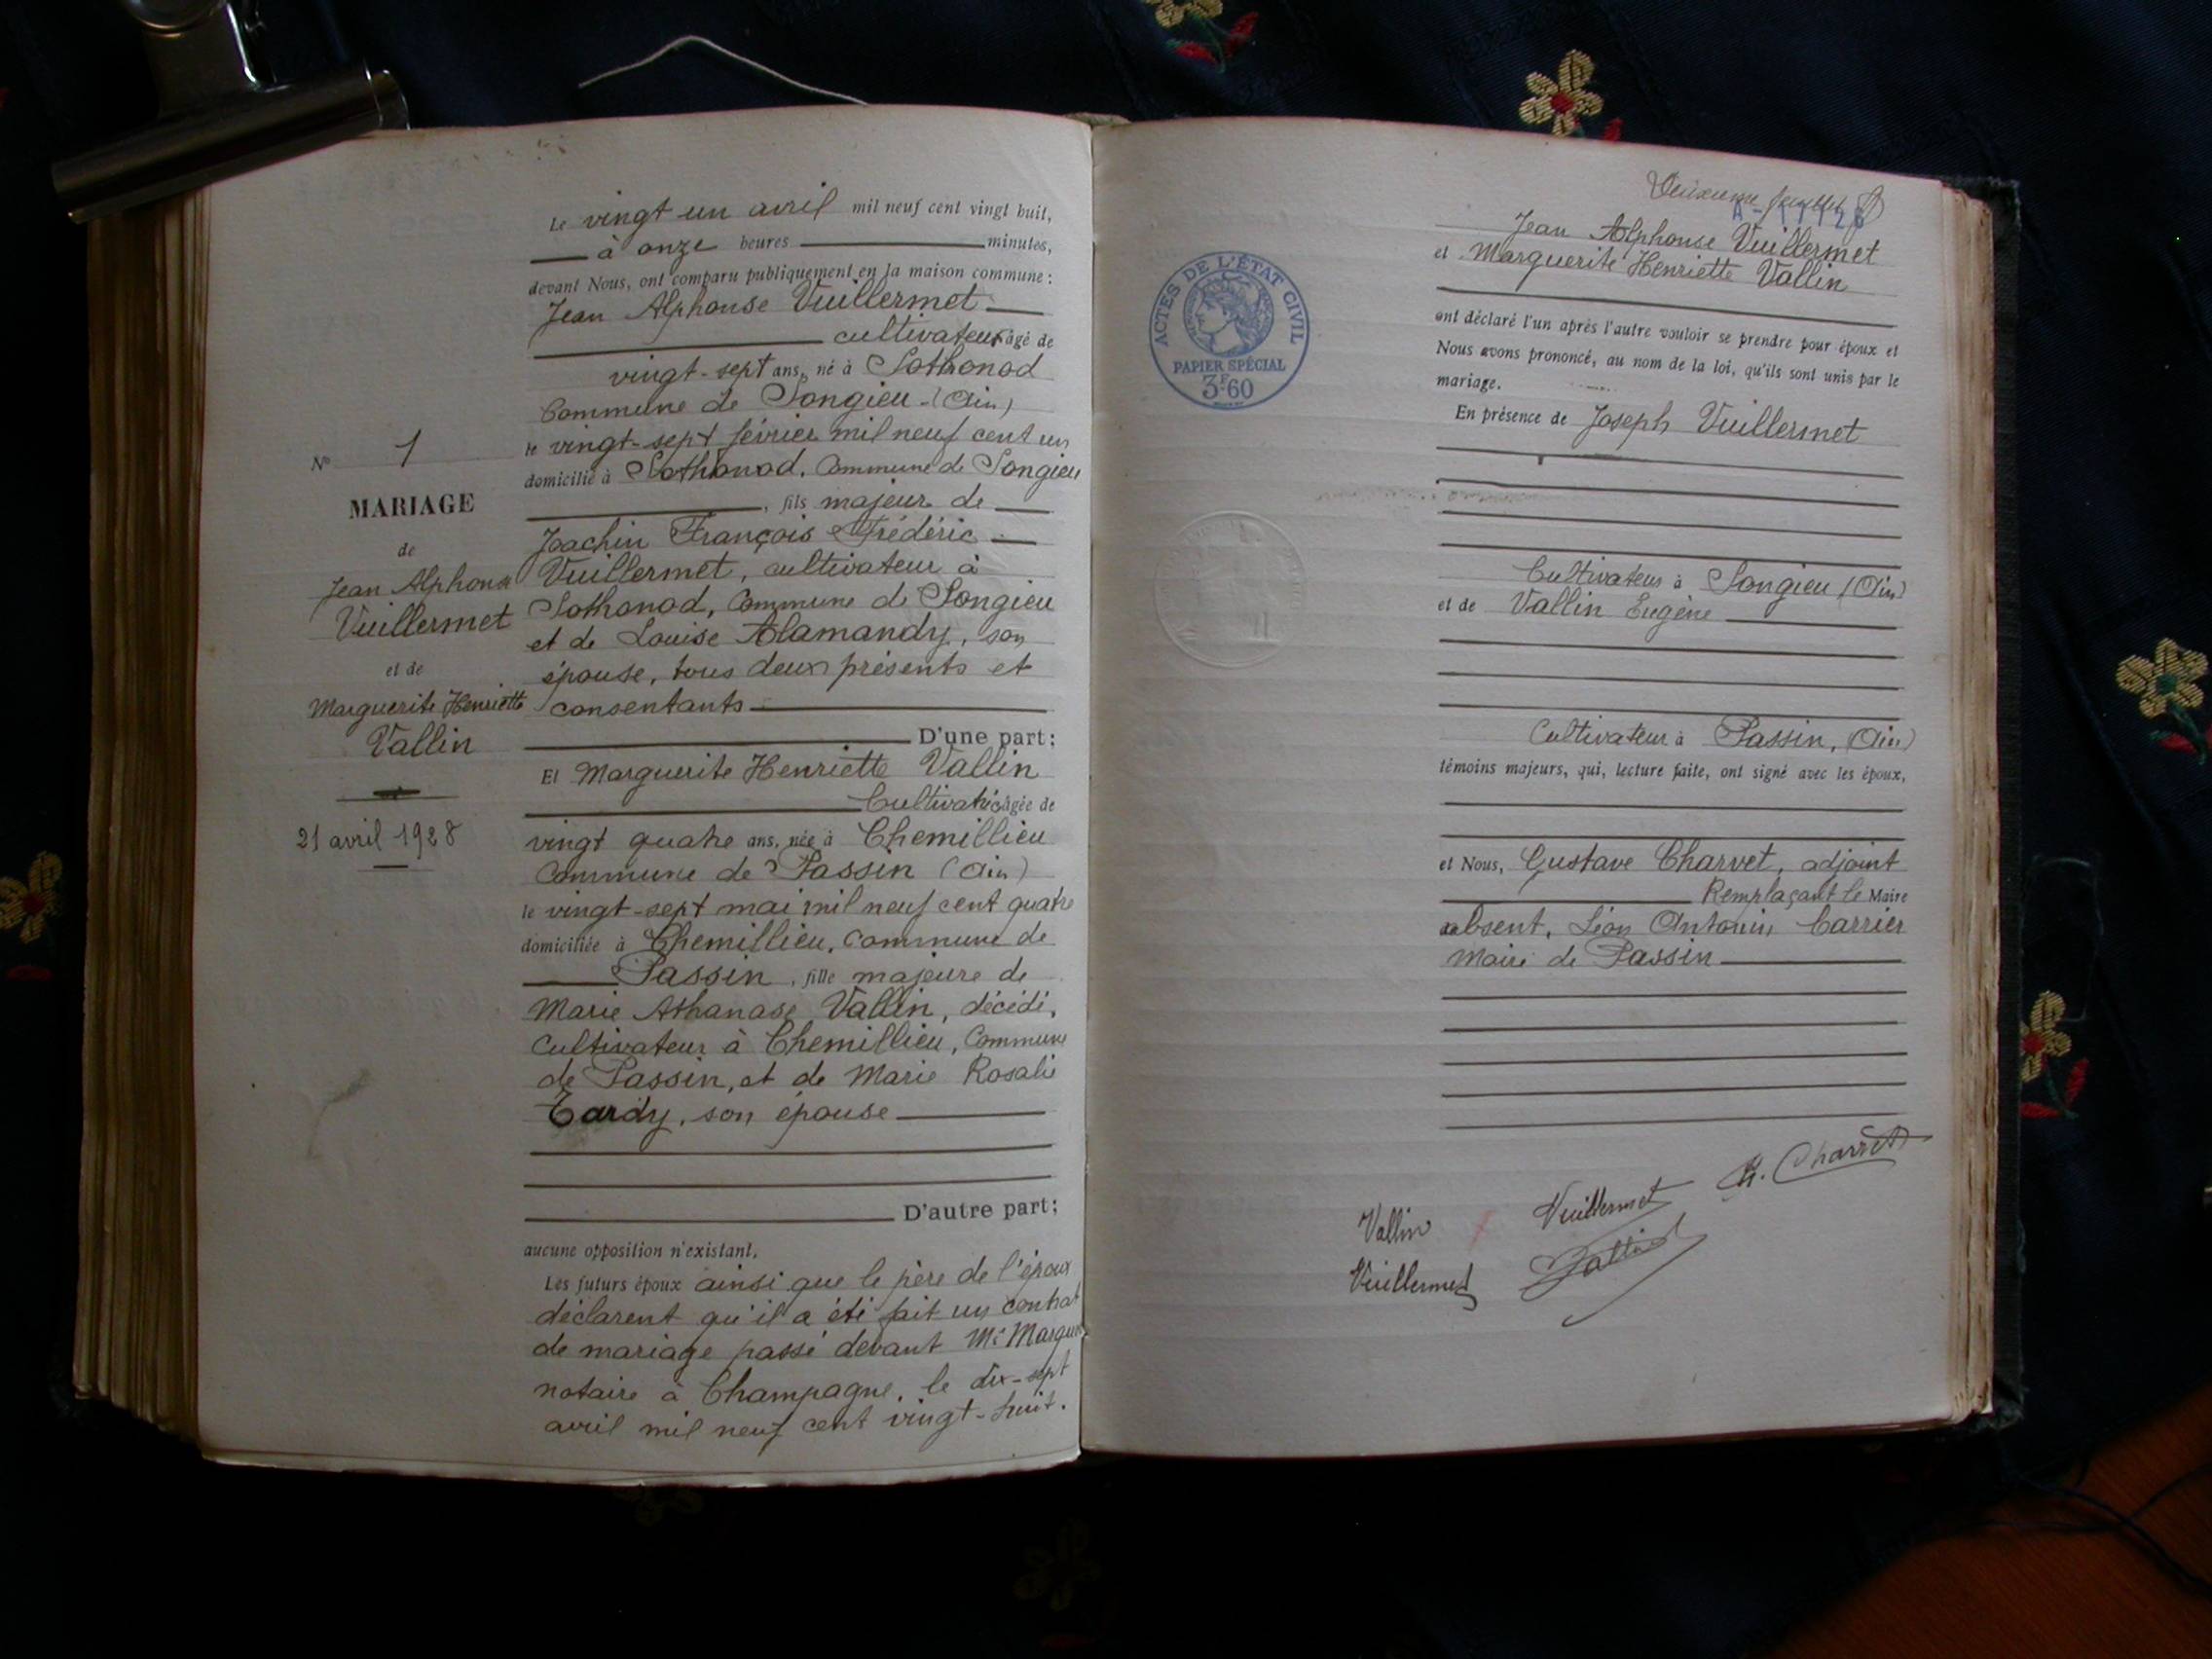 Le vingt-un avril mil neuf cent vingt huit,
à onze heures minutes,
devant Nous, ont comparu publiquement en la maison commune :
Jean Alphonse Vuillermet
cultivateur âgé de
vingt-sept ans, né à Sothonod
Commune de Songieu (Ain)
le vingt-sept février mil neuf cent un
domicilié à Sothonod, Commune de Songieu
, fils majeur de
Joachin François Frédéric
Vuillermet, cultivateur à
Sothonod, Commune de Songieu
et de Louise Alamandy, son
épouse, tous deux présents et
consentants
D'une part;
Et Marguerite Henriette Vallin
Cultivatrice âgée de
vingt quatre ans, née à Chemillieu
Commune de Passin (Ain)
le vingt-sept mai mil neuf cent quatre
domiciliée à Chemillieu, Commune de
Passin, fille majeure de
Marie Athanase Vallin, décédé,
Cultivateur à Chemillieu, Commune
de Passin, et de Marie Rosalie
Tardy, son épouse
D'autre part;
aucune opposition n'existant.
Les futurs époux ainsi que le père de l'époux
déclarent qu'il a été fait un contrat
de mariage passé devant Me
notaire à Champagne, le dix-sept
avril mil neuf cent vingt-huit.
No 1
MARIAGE
de
Jean Alphonse
Vuillermet
et de
Marguerite Henriette
Vallin
21 avril 1928
ACTES DE L'ÉTAT CIVIL
PAPIER SPÉCIAL
3F.60
feuillet
Jean Alphonse Vuillermet
et Marguerite Henriette Vallin
ont déclaré l'un après l'autre vouloir se prendre pour époux et
Nous avons prononcé, au nom de la loi, qu'ils sont unis par le
mariage.
En présence de Joseph Vuillermet
Cultivateur à Songieu (Ain)
et de Vallin Eugène
Cultivateur à Passin, (Ain)
témoins majeurs, qui, lecture faite, ont signé avec les époux,
et Nous, Gustave Charvet, adjoint
Remplaçant le Maire
absent, Léon Antonin Carrier
Maire de Passin
G. Charvet
Vallin Vuillermet
Vuillermet Vallin